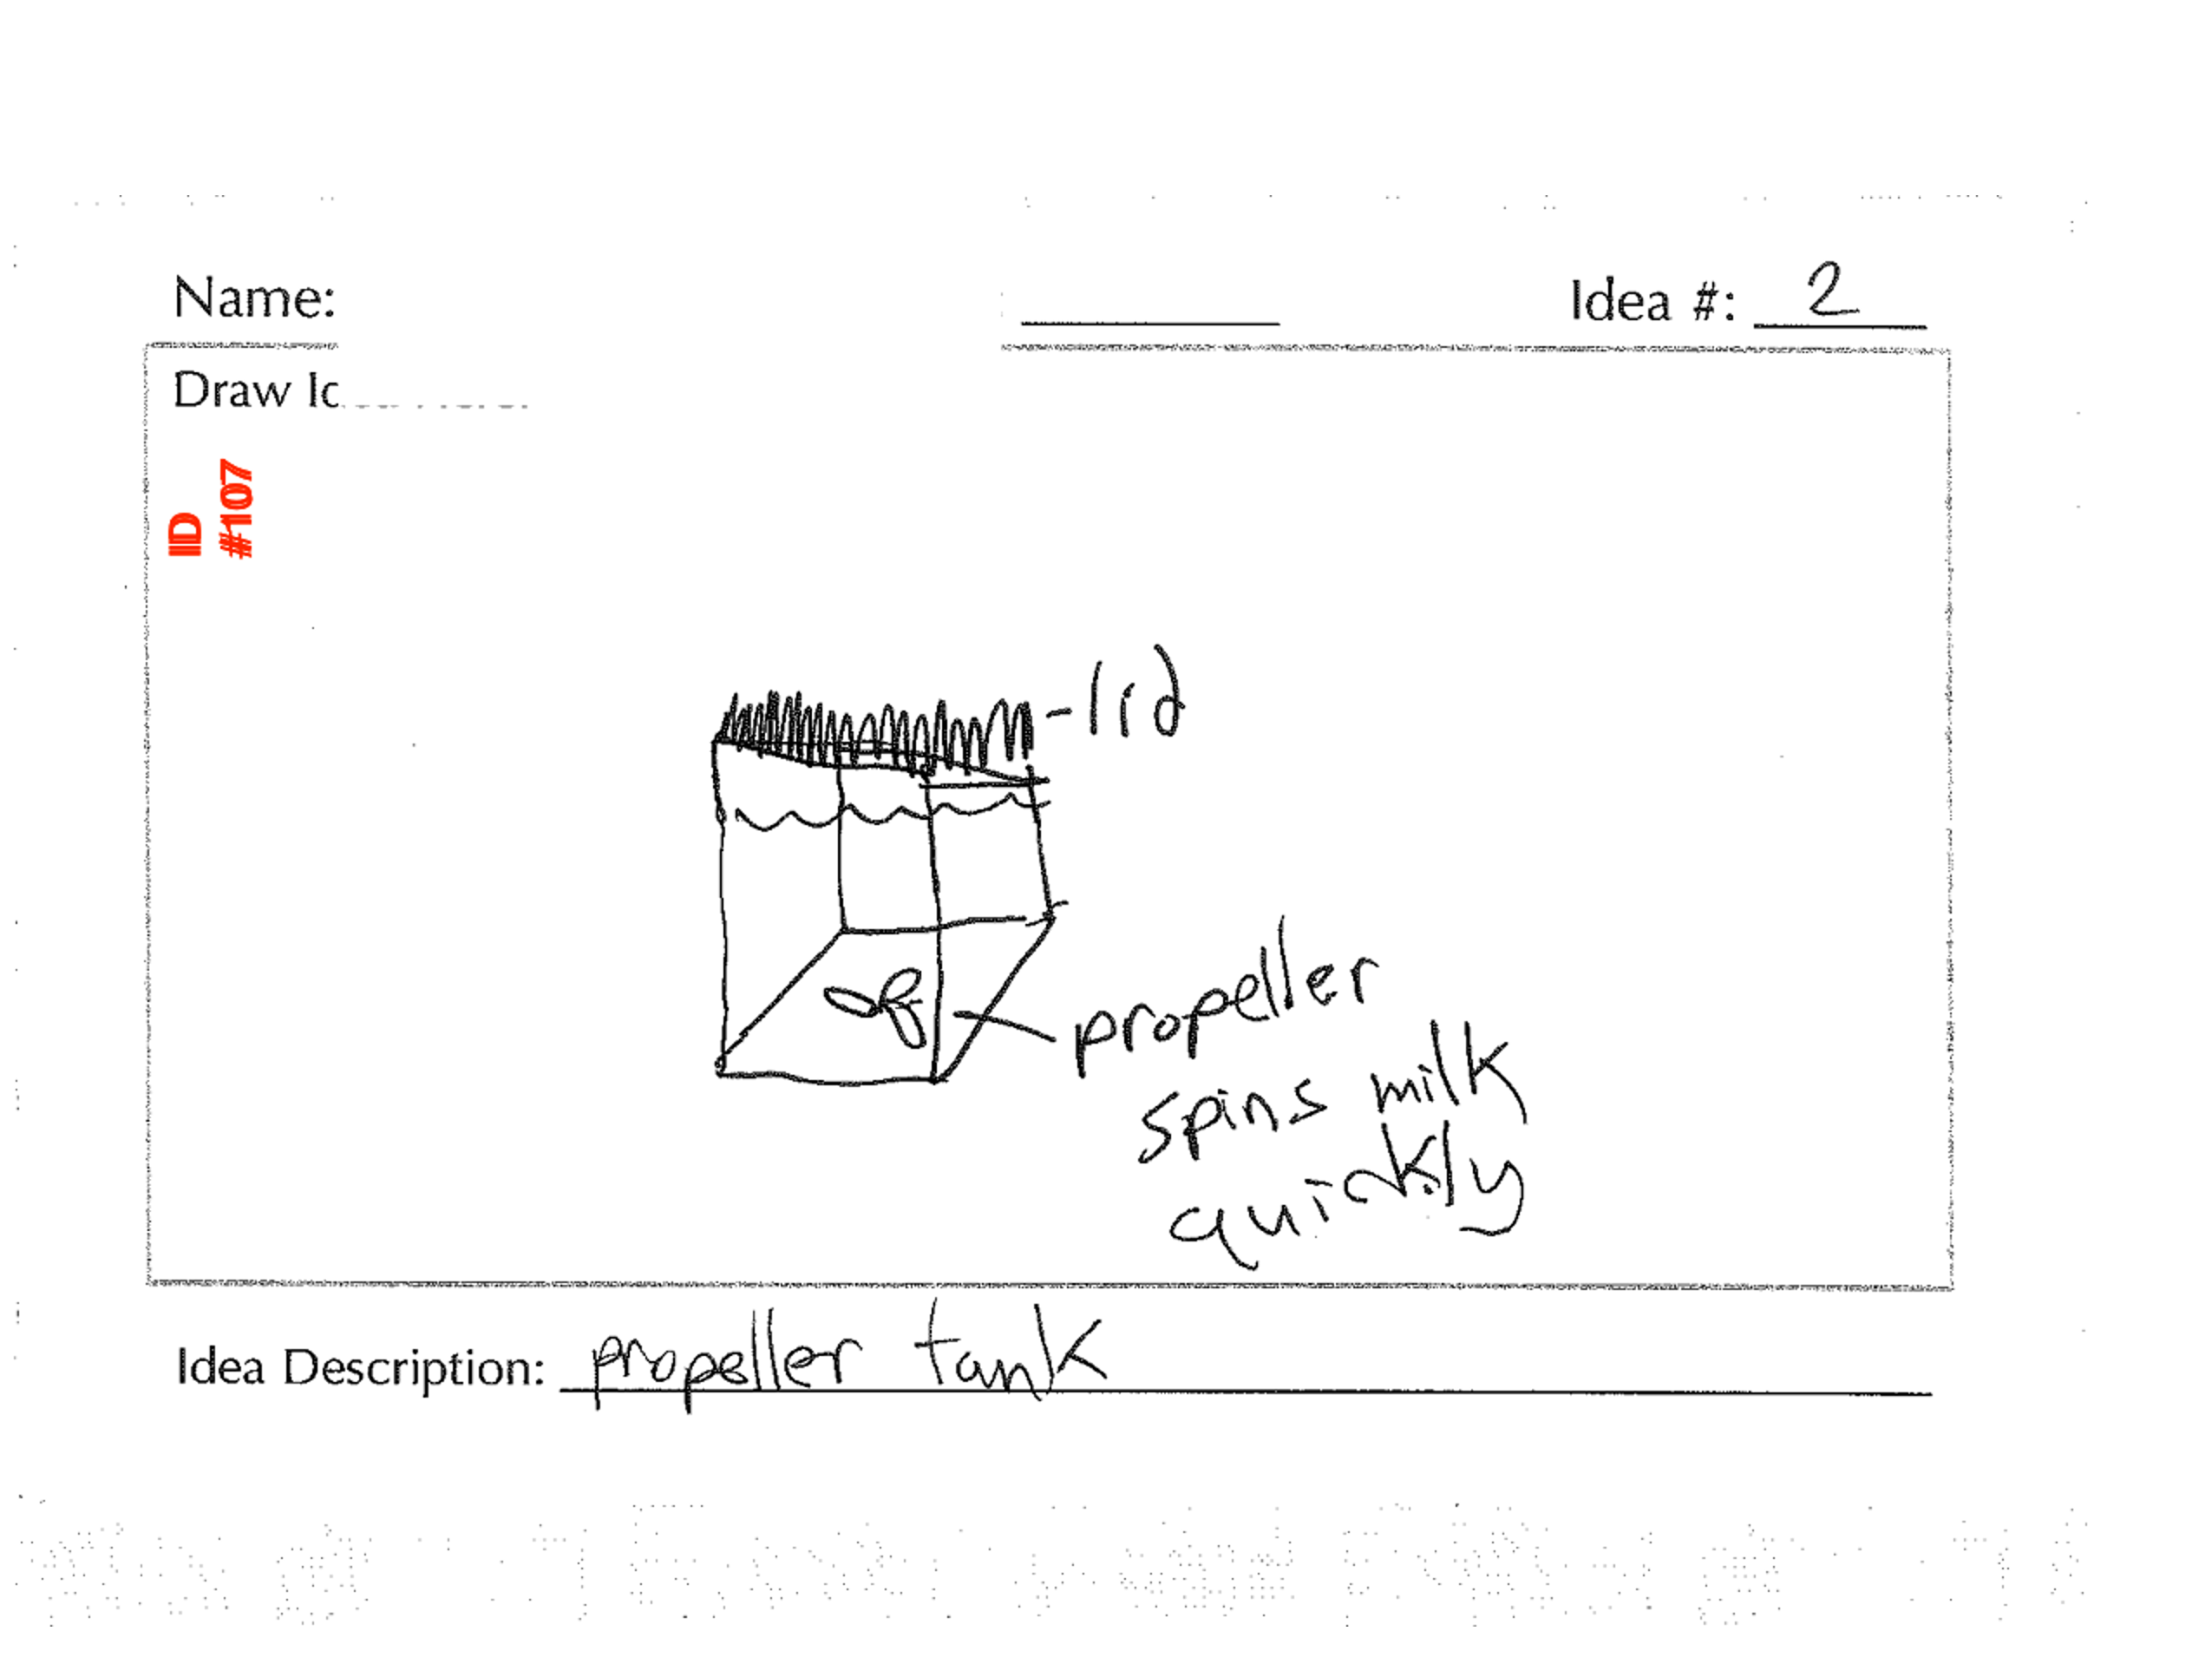 Name:
Idea #: 2
Draw Id
ID
#107
-lid
propeller
spins milk
quickly
Idea Description: propeller tank